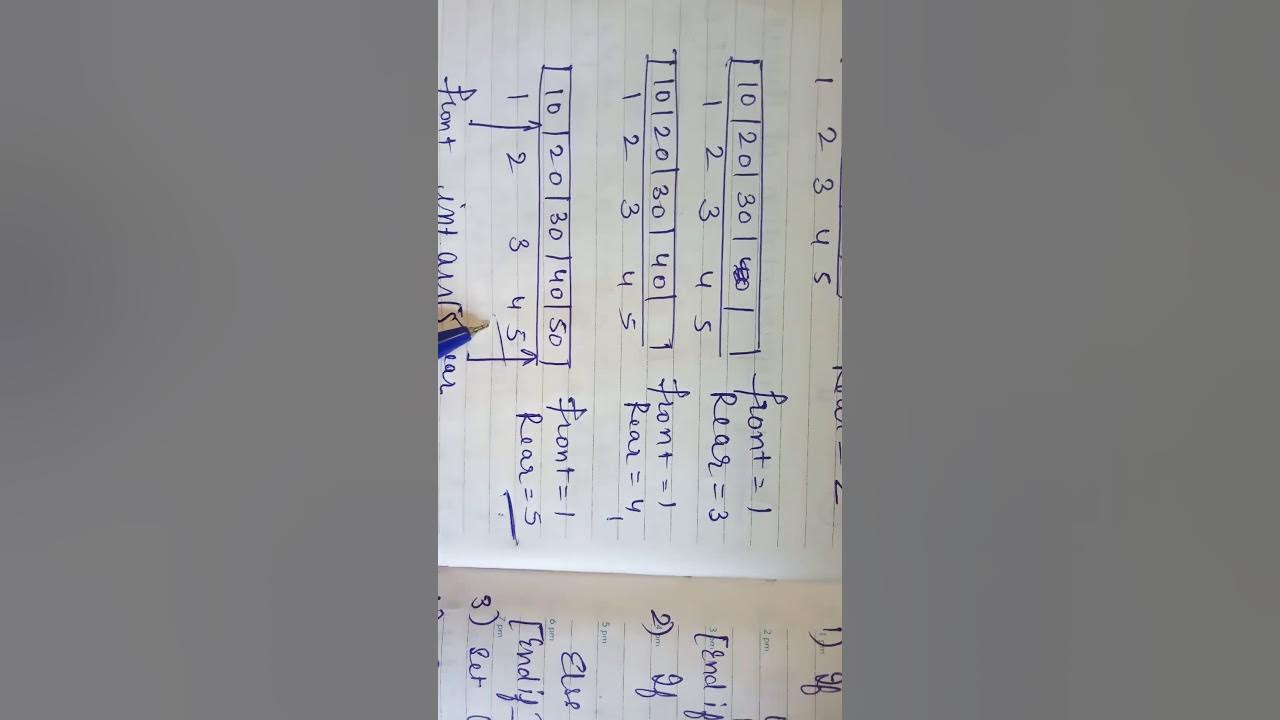 1 2 3 4 5
10 20 30
1 2 3 4 5
front = 1
Rear = 3
10 20 30 40
1 2 3 4 5
front = 1
Rear = 4
10 20 30 40 50
1 2 3 4 5
front = 1
Rear = 5
front int arr[5
1) If
2 pm
[End if
3 pm
2) If
5 pm
Else
6 pm
[End if
7 pm
3) Set